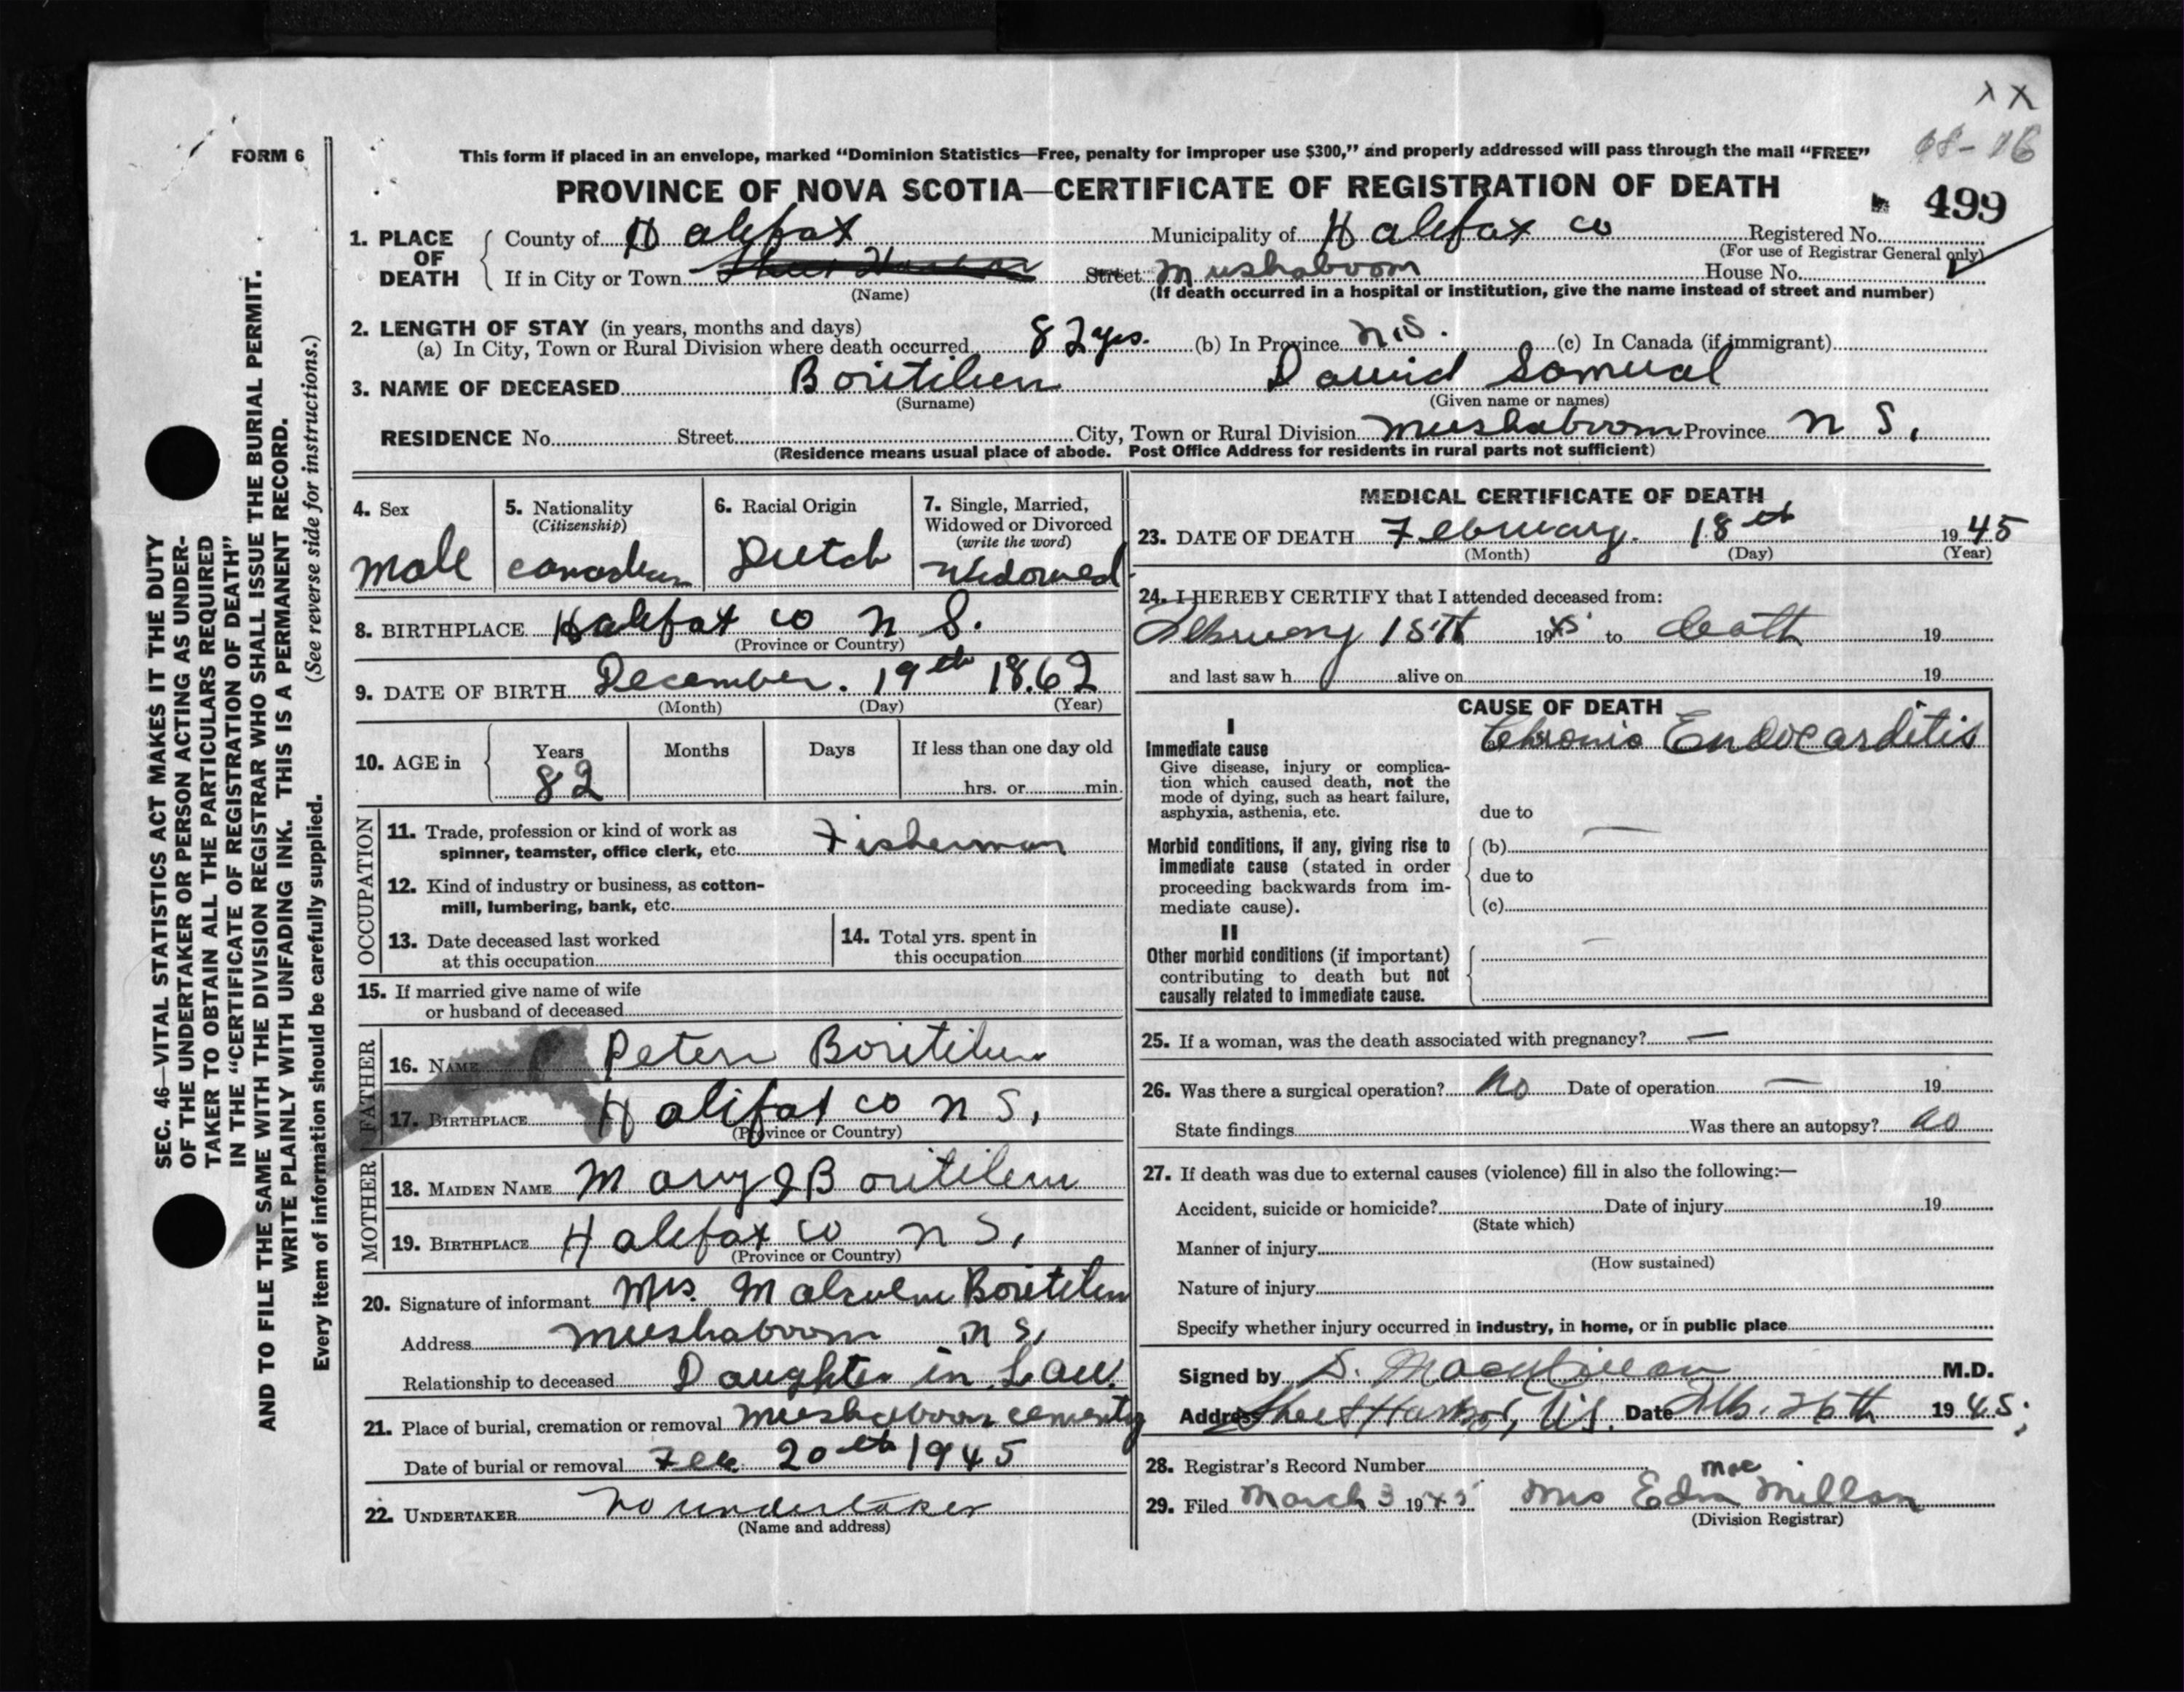 X X
FORM 6
This form if placed in an envelope, marked “Dominion Statistics—Free, penalty for improper use $300,” and properly addressed will pass through the mail “FREE”
PROVINCE OF NOVA SCOTIA—CERTIFICATE OF REGISTRATION OF DEATH
499
1. PLACE OF DEATH County of Halifax Municipality of Halifax co Registered No.
(For use of Registrar General only)
If in City or Town Street Mushaboom House No.
(Name) (If death occurred in a hospital or institution, give the name instead of street and number)
2. LENGTH OF STAY (in years, months and days)
(a) In City, Town or Rural Division where death occurred 82 yrs. (b) In Province N.S. (c) In Canada (if immigrant)
3. NAME OF DECEASED Boutilier David Samual
(Surname) (Given name or names)
RESIDENCE No. Street City, Town or Rural Division Mushaboom Province N S.
(Residence means usual place of abode. Post Office Address for residents in rural parts not sufficient)
4. Sex
Male
5. Nationality
(Citizenship)
Canadian
6. Racial Origin
Dutch
7. Single, Married,
Widowed or Divorced
(write the word)
Widowed
8. BIRTHPLACE Halifax co N S.
(Province or Country)
9. DATE OF BIRTH December. 19th 1862
(Month) (Day) (Year)
10. AGE in Years Months Days If less than one day old
82 hrs. or min.
OCCUPATION
11. Trade, profession or kind of work as
spinner, teamster, office clerk, etc. Fisherman
12. Kind of industry or business, as cotton-
mill, lumbering, bank, etc.
13. Date deceased last worked
at this occupation
14. Total yrs. spent in
this occupation
15. If married give name of wife
or husband of deceased
FATHER
16. NAME Peter Boutilier
17. BIRTHPLACE Halifax co N S.
(Province or Country)
MOTHER
18. MAIDEN NAME Mary J Boutilier
19. BIRTHPLACE Halifax co N S.
(Province or Country)
20. Signature of informant Mrs. Malcolm Boutilier
Address Mushaboom N S.
Relationship to deceased Daughter in Law.
21. Place of burial, cremation or removal Mushaboom cementry
Date of burial or removal Feb. 20th 1945
22. UNDERTAKER No undertaker
(Name and address)
MEDICAL CERTIFICATE OF DEATH
23. DATE OF DEATH February. 18th 1945
(Month) (Day) (Year)
24. I HEREBY CERTIFY that I attended deceased from:
February 15th 1945 to death 19
and last saw h alive on 19
CAUSE OF DEATH
I
Immediate cause
Give disease, injury or complica-
tion which caused death, not the
mode of dying, such as heart failure,
asphyxia, asthenia, etc.
(a) Chronic Endocarditis
due to
Morbid conditions, if any, giving rise to
immediate cause (stated in order
proceeding backwards from im-
mediate cause).
(b) —
due to
(c)
II
Other morbid conditions (if important)
contributing to death but not
causally related to immediate cause.
—
25. If a woman, was the death associated with pregnancy? —
26. Was there a surgical operation? No Date of operation — 19
State findings Was there an autopsy? no
27. If death was due to external causes (violence) fill in also the following:—
Accident, suicide or homicide? Date of injury 19
(State which)
Manner of injury
(How sustained)
Nature of injury
Specify whether injury occurred in industry, in home, or in public place
Signed by D. MacMillan M.D.
Address Sheet Harbor, N.S. Date Feb. 26th 1945
28. Registrar's Record Number
29. Filed March 3 1945 Mrs Edna MacMillan
(Division Registrar)
SEC. 46—VITAL STATISTICS ACT MAKES IT THE DUTY
OF THE UNDERTAKER OR PERSON ACTING AS UNDER-
TAKER TO OBTAIN ALL THE PARTICULARS REQUIRED
IN THE “CERTIFICATE OF REGISTRATION OF DEATH”
AND TO FILE THE SAME WITH THE DIVISION REGISTRAR WHO SHALL ISSUE THE BURIAL PERMIT.
WRITE PLAINLY WITH UNFADING INK. THIS IS A PERMANENT RECORD.
Every item of information should be carefully supplied. (See reverse side for instructions.)